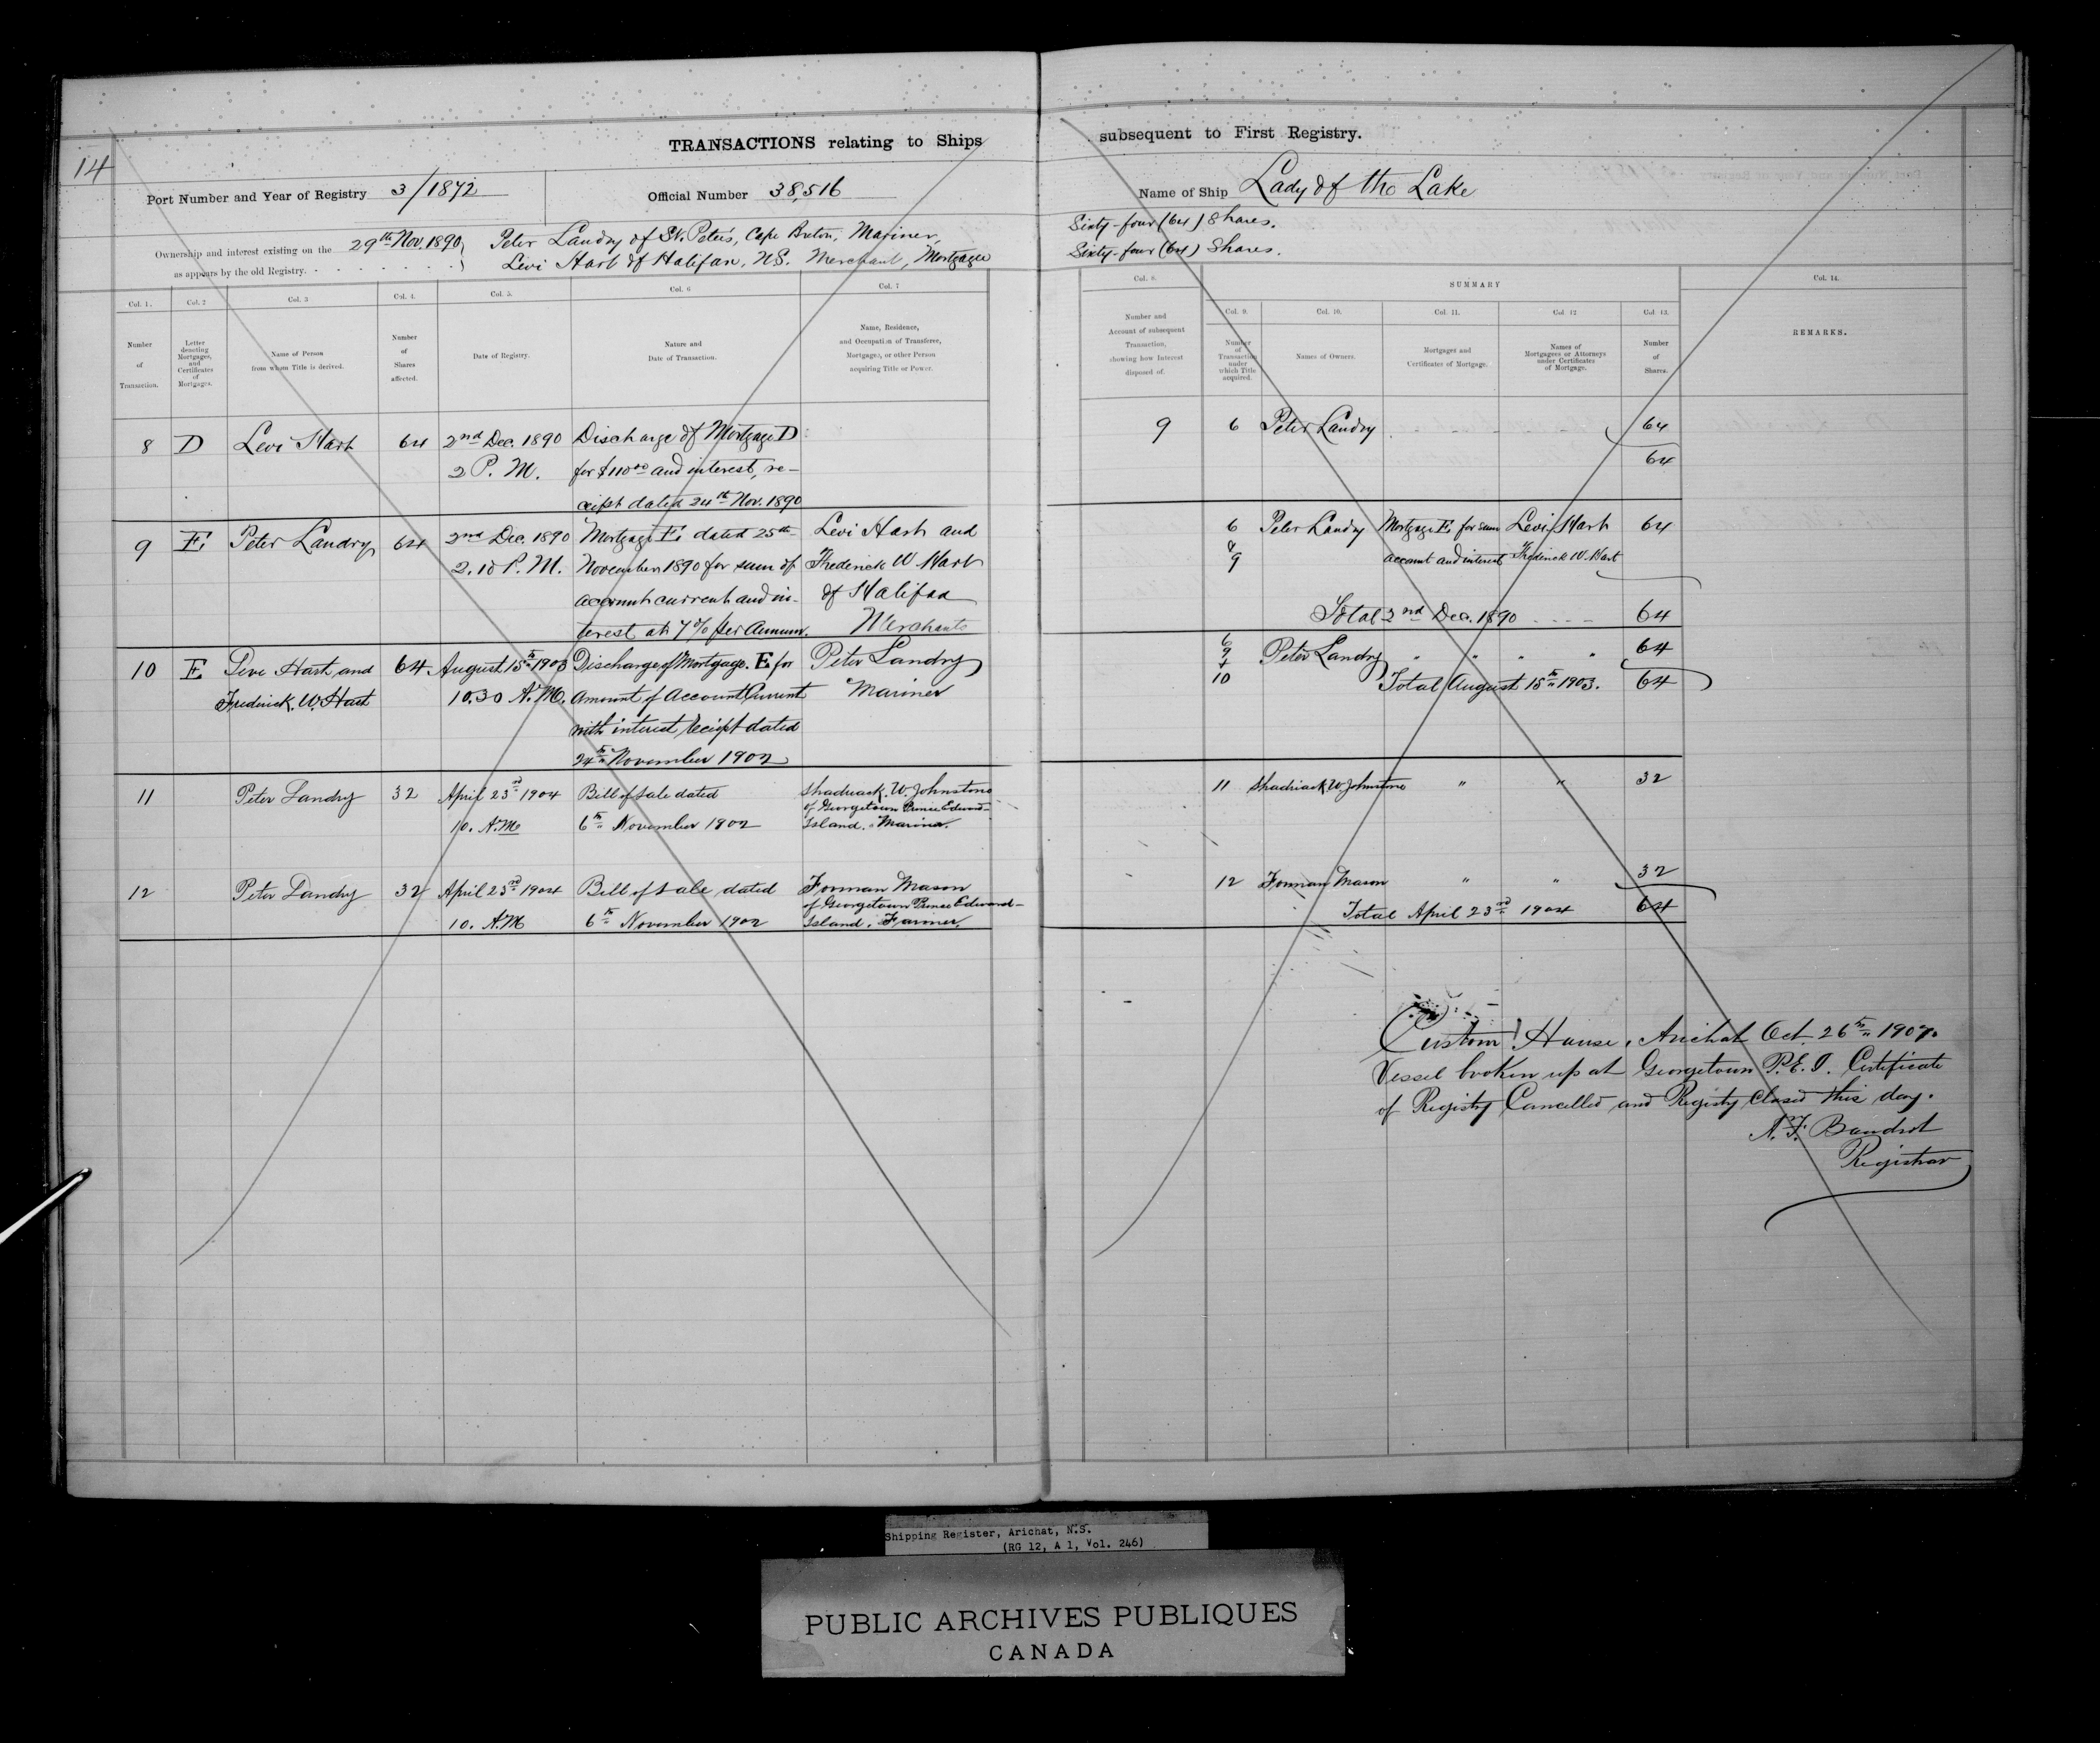 14
TRANSACTIONS relating to Ships subsequent to First Registry.
Port Number and Year of Registry 3/1872 Official Number 38,516 Name of Ship Lady of the Lake
Ownership and interest existing on the 29th Nov. 1890 Peter Landry of St. Peters, Cape Breton, Mariner, Sixty-four (64) Shares.
as appears by the old Registry. Levi Hart of Halifax, N.S. Merchant, Mortgagee Sixty-four (64) Shares.
Col. 1. Col. 2 Col. 3 Col. 4. Col. 5. Col. 6 Col. 7
Number of Transaction.
Letter denoting Mortgages, and Certificates of Mortgages.
Name of Person from whom Title is derived.
Number of Shares affected.
Date of Registry.
Nature and Date of Transaction.
Name, Residence, and Occupation of Transferee, Mortgagee, or other Person acquiring Title or Power.
8 D Levi Hart 64 2nd Dec. 1890 Discharge of Mortgage D
2 P. M. for $110 00 and interest, re-
ceipt dated 24th Nov. 1890
9 E Peter Landry 64 2nd Dec. 1890 Mortgage E dated 25th Levi Hart and
2.10 P. M. November 1890 for sum of Frederick W Hart
account current and in- of Halifax
terest at 7% per Annum. Merchants
10 E Levi Hart and 64 August 15th 1903 Discharge of Mortgage. E for Peter Landry
Frederick. W. Hart 10.30 A.M. Amount of Account Current Mariner
with interest receipt dated
24th November 1902
11 Peter Landry 32 April 23rd 1904 Bill of Sale dated Shadrack. W. Johnstone
of Georgetown Prince Edward
10. A.M 6th November 1902 Island. Mariner.
12 Peter Landry 32 April 23rd 1904 Bill of Sale dated Forman Mason
of Georgetown Prince Edward
10. A.M 6th November 1902 Island. Farmer.
Col. 8. SUMMARY Col. 14.
Col. 9. Col. 10. Col. 11. Col. 12 Col. 13.
Number and Account of subsequent Transaction, showing how Interest disposed of.
Number of Transaction under which Title acquired.
Names of Owners.
Mortgages and Certificates of Mortgage.
Names of Mortgagees or Attorneys under Certificates of Mortgage.
Number of Shares.
REMARKS.
9 6 Peter Landry 64
64
6 Peter Landry Mortgage E for sum Levi Hart 64
&
9 account and interest Frederick W. Hart
Total 2nd Dec. 1890 64
6
9 Peter Landry " " " " 64
+
10 Total August 15th 1903. 64
11 Shadrack W Johnstone " " 32
12 Forman Mason " " 32
Total April 23rd 1904 64
Custom House, Arichat Oct. 26th 1907.
Vessel broken up at Georgetown P.E.I. Certificate
of Registry Cancelled and Registry Closed this day.
Registrar
Shipping Register, Arichat, N.S.
(RG 12, A 1, Vol. 246)
PUBLIC ARCHIVES PUBLIQUES
CANADA